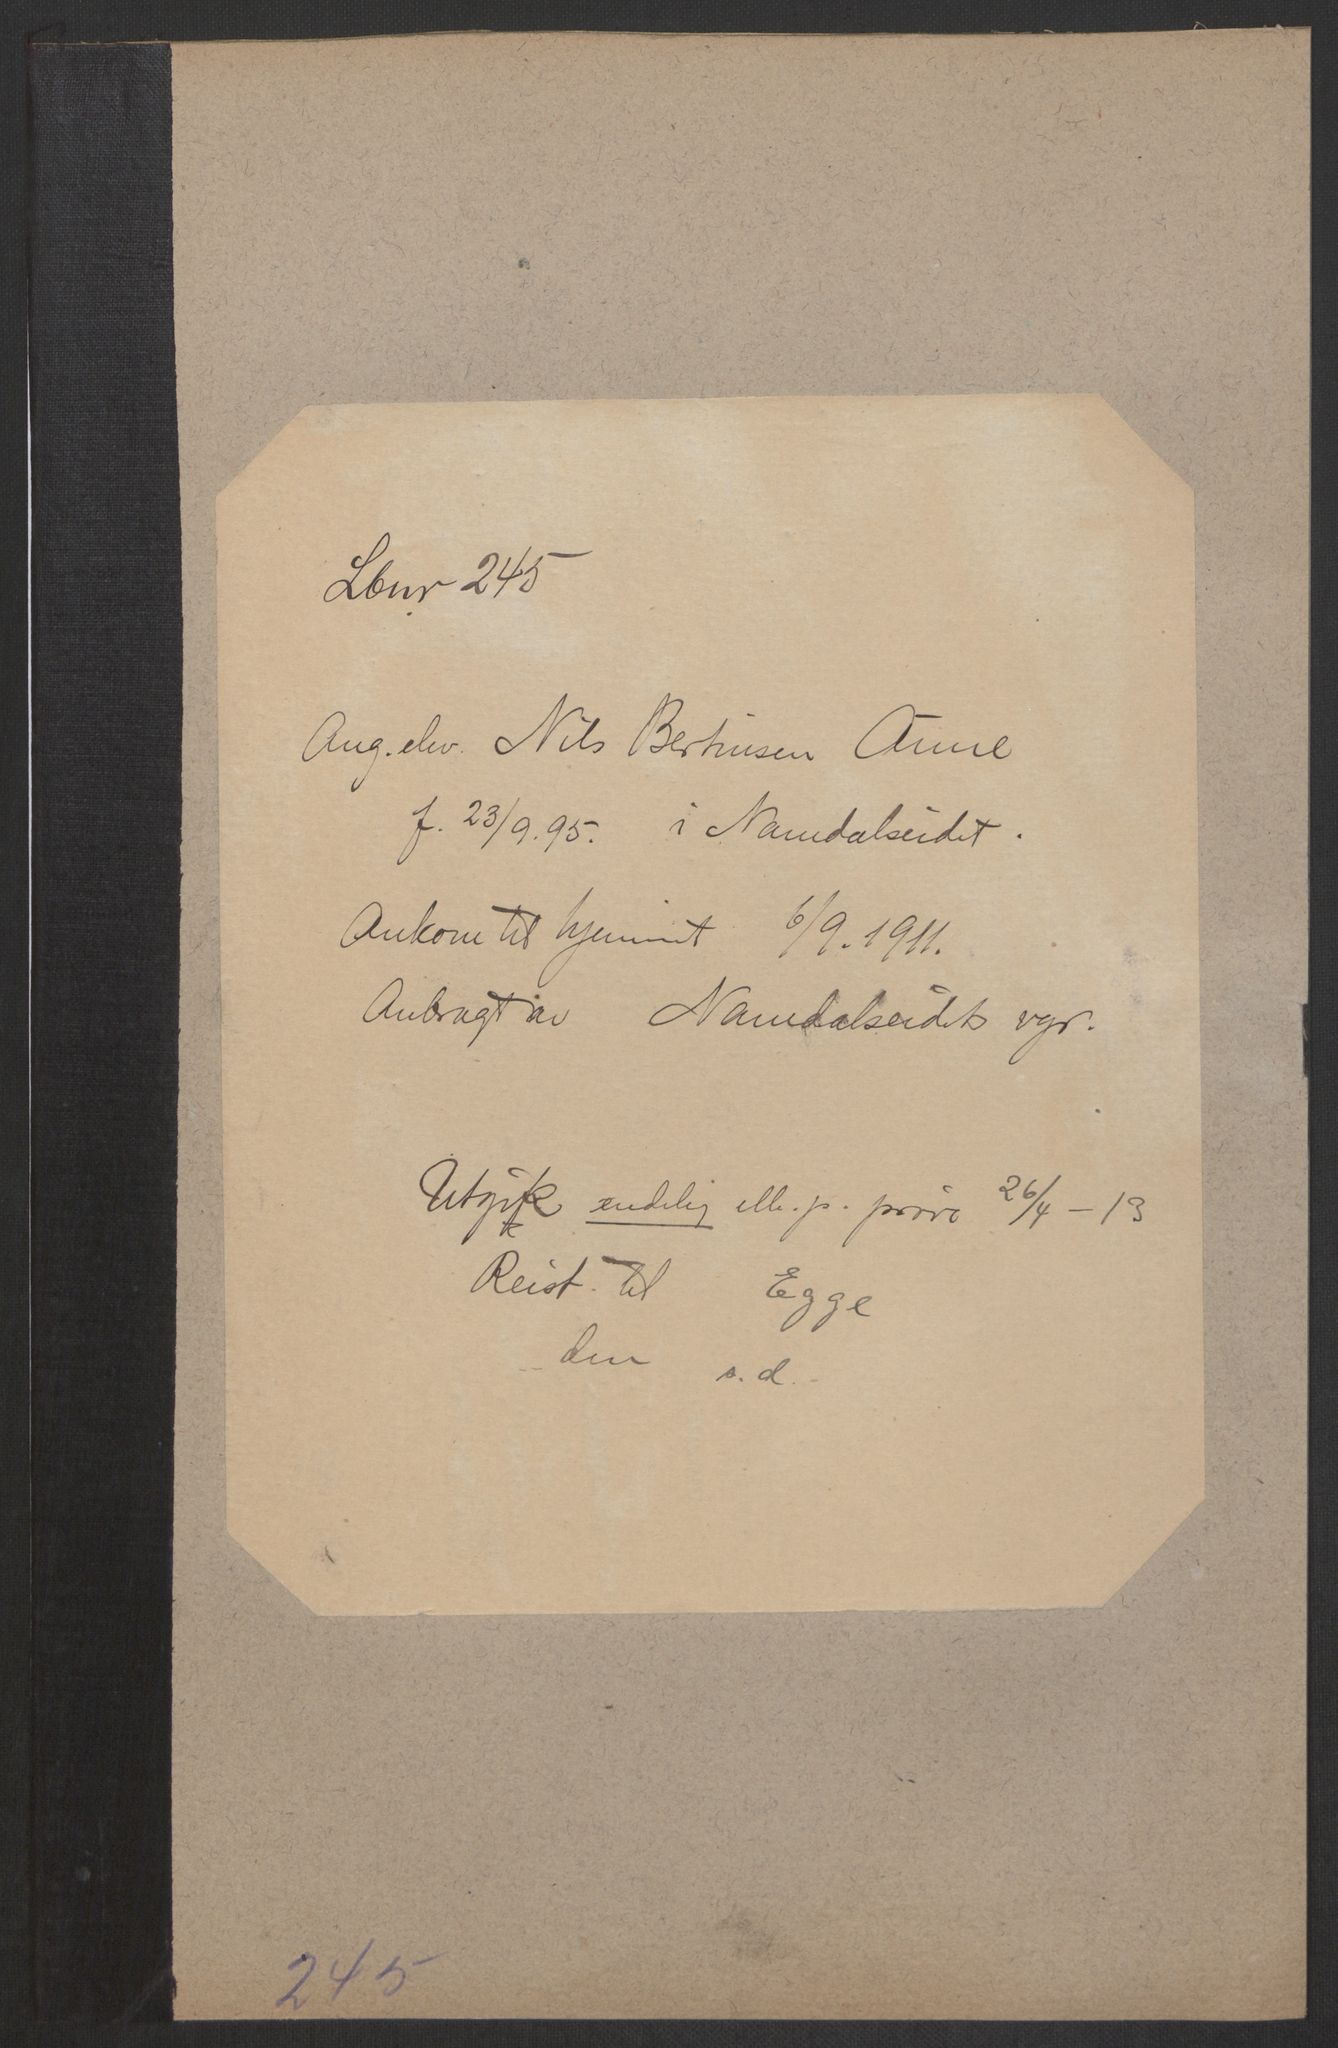 Lbnr 245
Ang. elev. Nils Bertinsen Aune
f. 23/9.95. i Namdalseidet.
Ankom til hjemmet 6/9.1911.
Anbragt av Namdalseidets vgr.
Utgik endelig ell. p. prøve 26/4 - 13
Reist til Egge
den s.d.
245